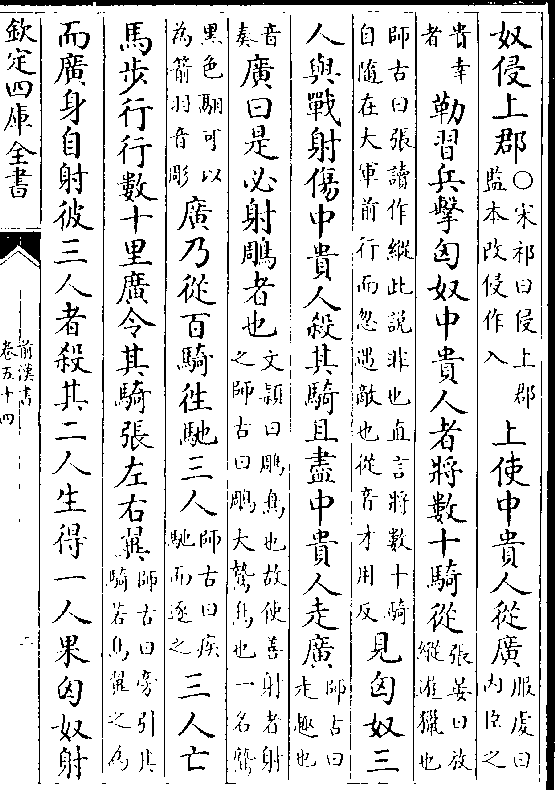 奴侵上郡○宋祁曰侵上郡監本改侵作入上使中貴人從廣服虔曰内臣之
貴幸者勒習兵擊匈奴中貴人者將數十騎從張晏曰放縱遊獵也
師古曰張讀作縱此説非也直言將數十騎自隨在大軍前行而忽遇敵也從音才用反見匈奴三
人與戰射傷中貴人殺其騎且盡中貴人走廣師古曰走趣也
音奏廣曰是必射鵰者也文穎曰鵰鳥也故使善射者射之師古曰鵰大鷙鳥也一名鷲
黑色翮可以為箭羽音彫廣乃從百騎往馳三人師古曰疾馳而逐之三人亡
馬步行行數十里廣令其騎張左右翼師古曰旁引其騎若鳥翼之為
而廣身自射彼三人者殺其二人生得一人果匈奴射
欽定四庫全書
前漢書
卷五十四